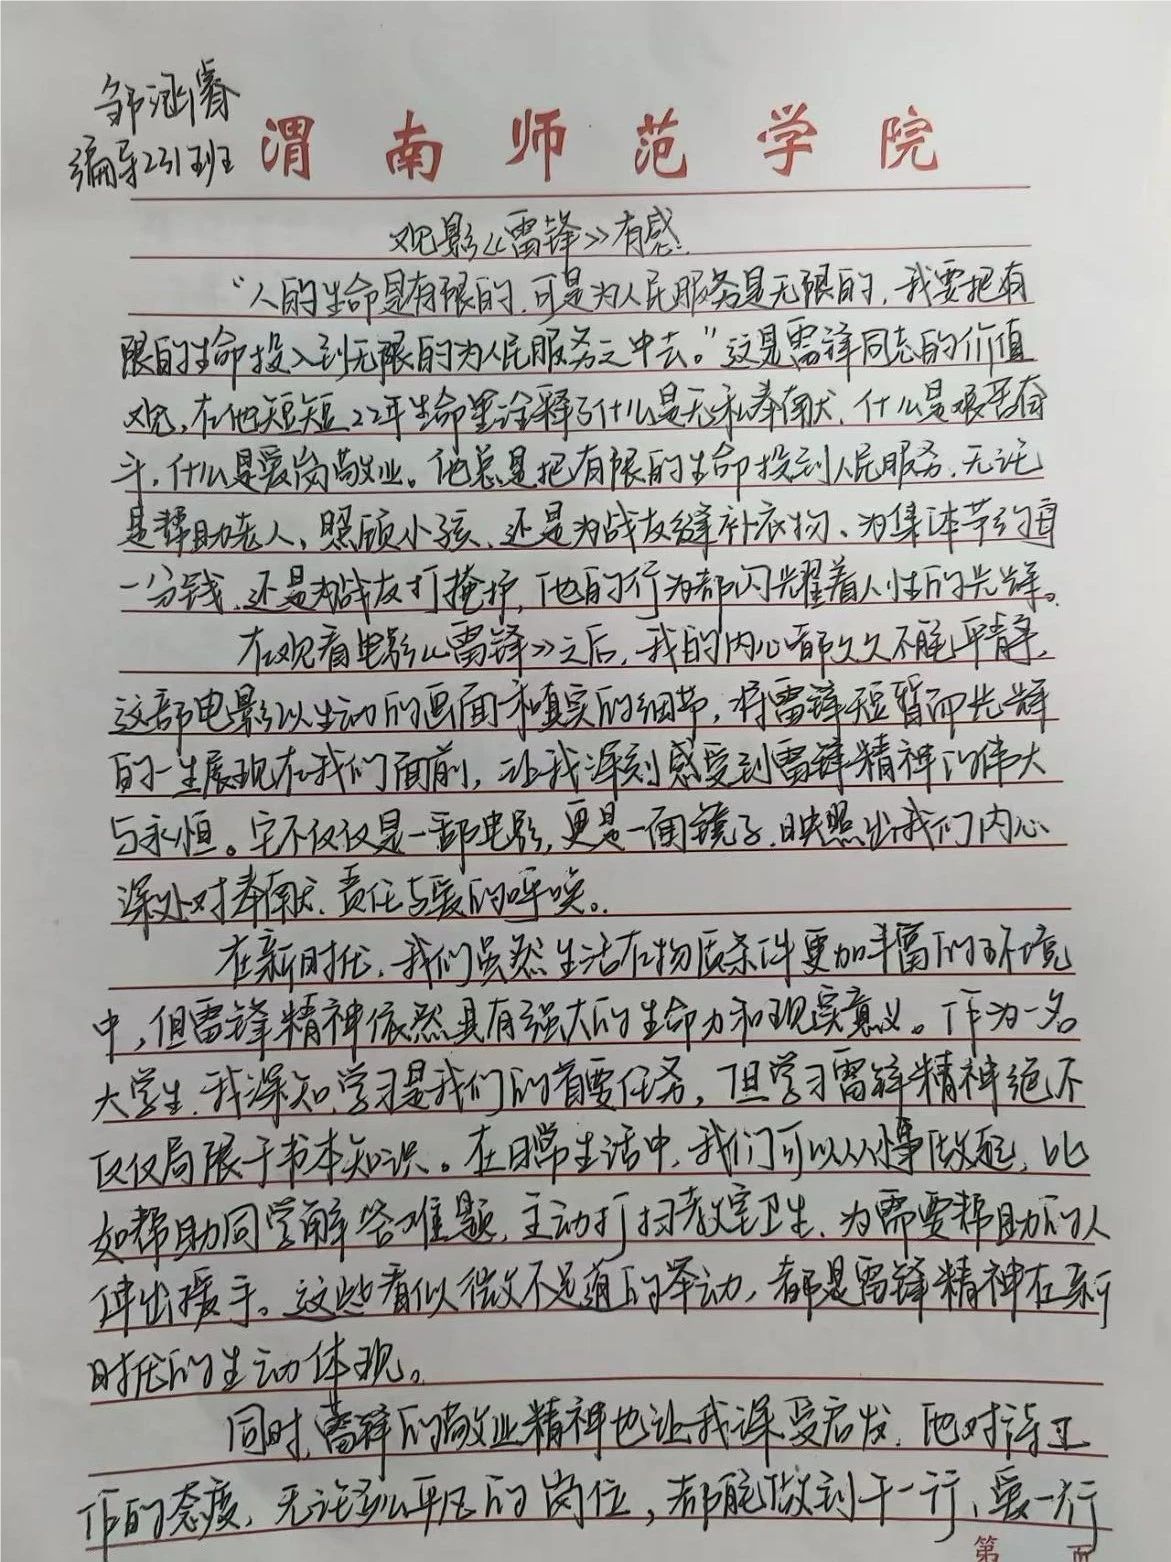 邹涵睿
编导231班
渭南师范学院
观影《雷锋》有感.
“人的生命是有限的,可是为人民服务是无限的,我要把有
限的生命投入到无限的为人民服务之中去。”这是雷锋同志的价值
观,在他短短22年生命里诠释了什么是无私奉献、什么是艰苦奋
斗,什么是爱岗敬业。他总是把有限的生命投到人民服务、无论
是帮助老人、照顾小孩、还是为战友缝补衣物、为集体节约每
一分钱、还是为战友打掩护,他的行为都闪耀着人性的光辉。
在观看电影《雷锋》之后,我的内心都久久不能平静,
这部电影以生动的画面和真实的细节,将雷锋短暂而光辉
的一生展现在我们面前,让我深刻感受到雷锋精神的伟大
与永恒。它不仅仅是一部电影,更是一面镜子,映照出我们内心
深处对奉献、责任与爱的呼唤。
在新时代,我们虽然生活在物质条件更加丰富的环境
中,但雷锋精神依然具有强大的生命力和现实意义。作为一名
大学生,我深知,学习是我们的首要任务,但学习雷锋精神绝不
仅仅局限于书本知识。在日常生活中,我们可以从小事做起,比
如帮助同学解答难题,主动打扫教室卫生,为需要帮助的人
伸出援手。这些看似微不足道的举动,都是雷锋精神在新
时代的生动体现。
同时,雷锋的敬业精神也让我深受启发,他对待工
作的态度,无论多么平凡的岗位,都能做到干一行、爱一行
第 页